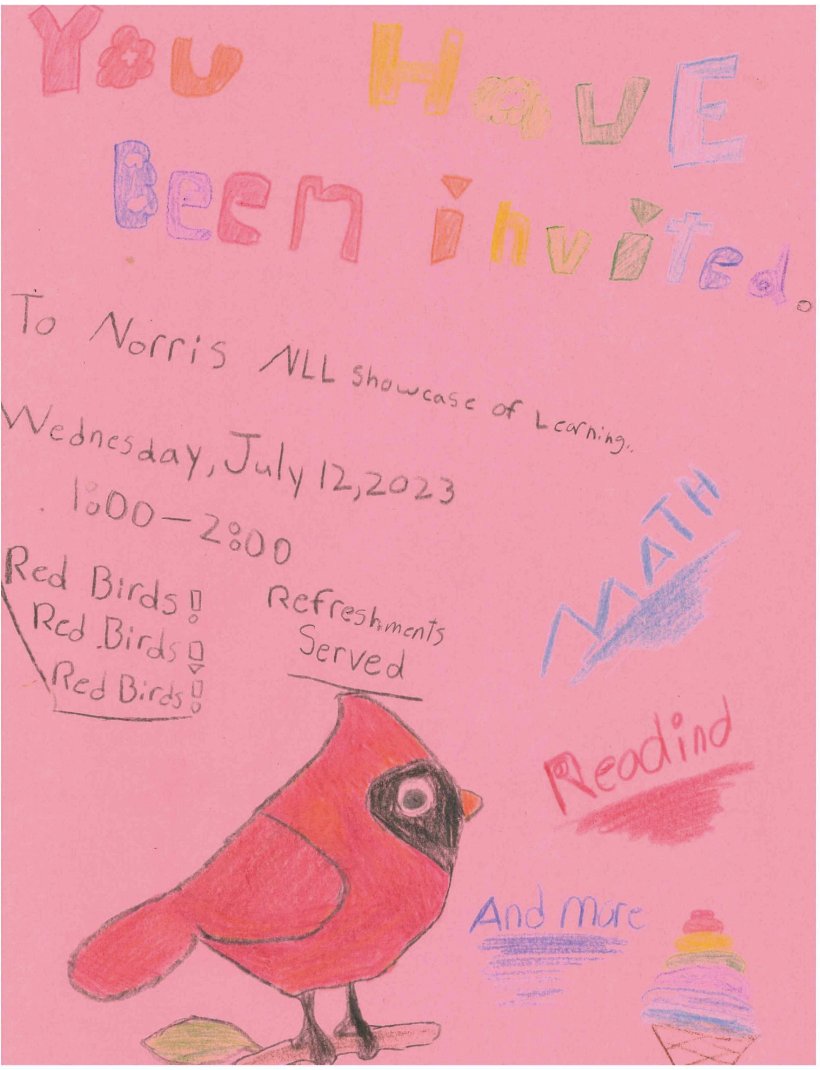 You HavE
Been invited.
To Norris NLL showcase of Learning.
Wednesday, July 12, 2023
1:00-2:00
Red Birds!
Red Birds!
Red Birds!
Refreshments
Served
MATH
Readind
And more